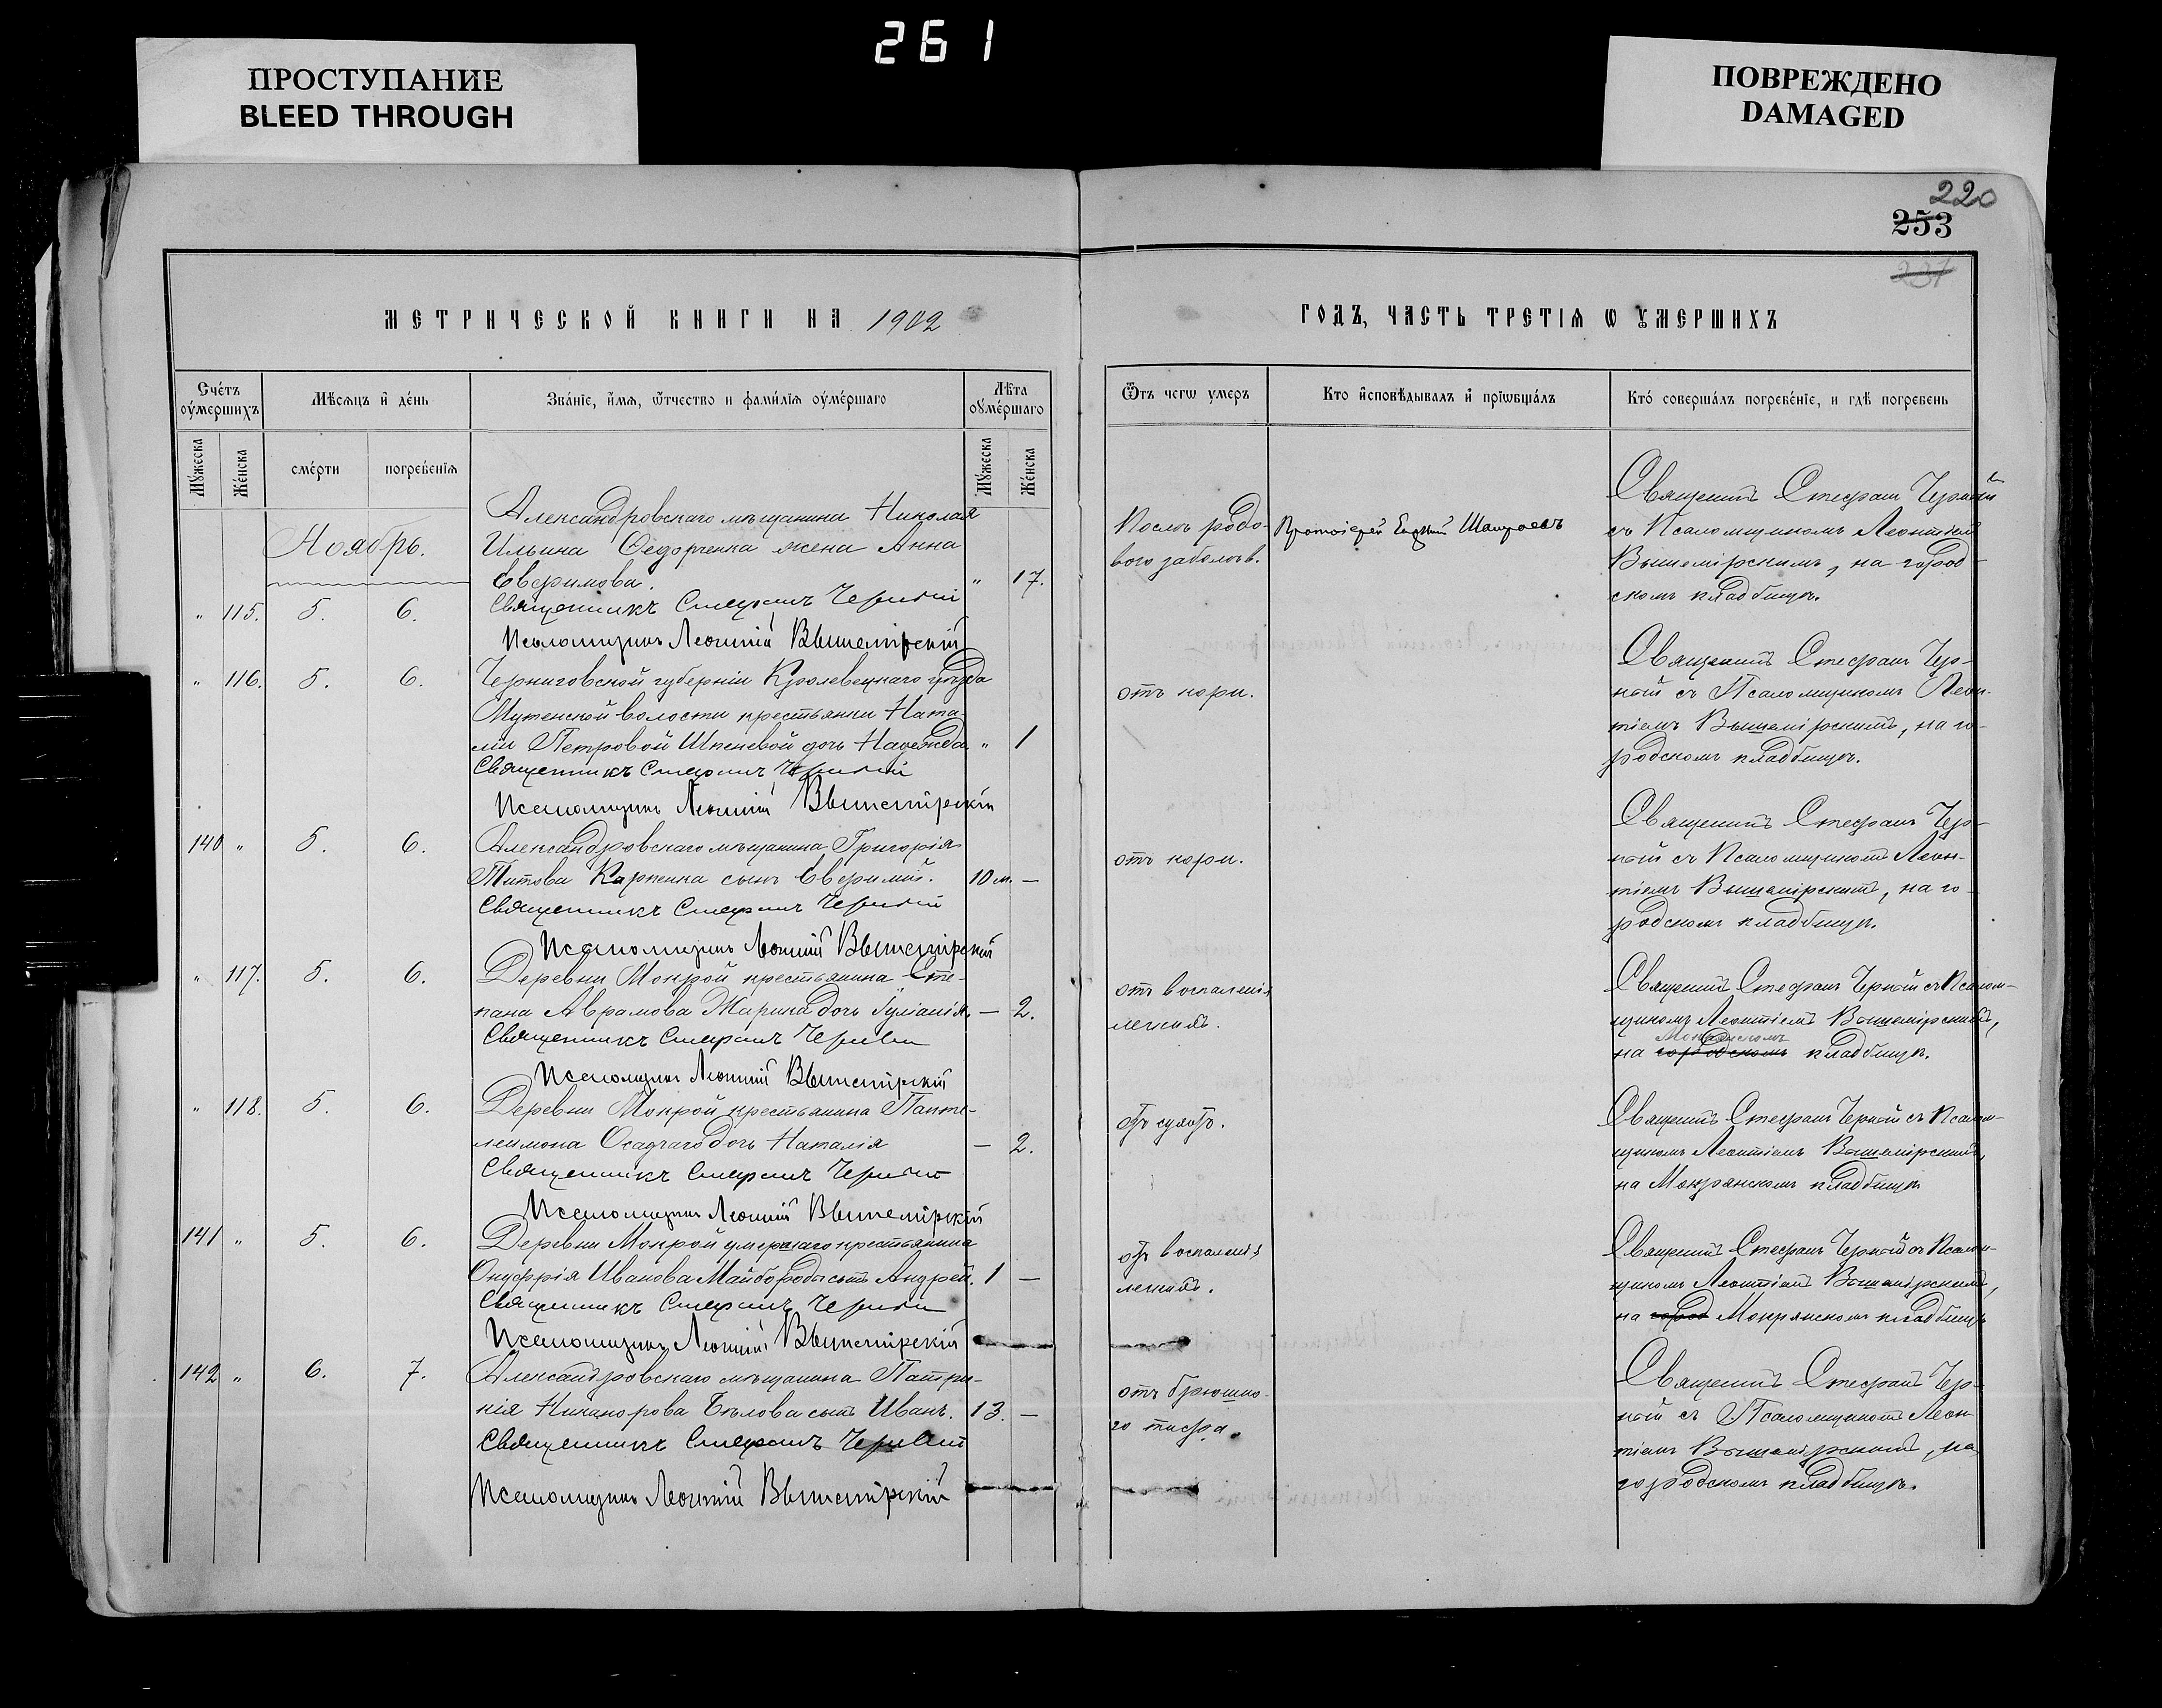 261
ПРОСТУПАНИЕ
BLEED THROUGH
ПОВРЕЖДЕНО
DAMAGED
220
253
237
МЕТРИЧЕСКОЙ КНИГИ НА 1902
ГОДЪ, ЧАСТЬ ТРЕТІѦ Ѡ ОУМЕРШИХЪ
Сче́тъ оу҆ме́ршихъ
Мѣсѧцъ и҆ де́нь
Зва́ніе, и҆́мѧ, ѻ҆́тчество и фами́лїѧ оу҆ме́ршаго
Лѣ́та оу҆ме́ршаго
Ѿъ чегѡ умеръ
Кто и҆сповѣ́дывалъ и҆ прїѡбща́лъ
Кто́ соверша́лъ погребе́ніе, и гдѣ̀ погребенъ
Му́жеска
Же́нска
сме́рти
погребе́нїѧ
Му́жеска
Же́нска
Ноябрь.
" 115. 5. 6.
Александровскаго мѣщанина Николая
Ильина Ѳедорченка жена Анна
Евфимова. " 17.
Священникъ Стефанъ Черный
Псаломщикъ Леонтій Вышемірскій
Послѣ родо-
вого заболѣв.
Протоіерей
Священникъ Стефанъ Черный
съ Псаломщикомъ Леонтіем
Вышемірскимъ, на город-
скомъ кладбищѣ.
" 116. 5. 6.
Черниговской губерніи Кролевецкаго уѣзда
Мутенской волости крестьянки Ната-
ліи Петровой Шпеневой дочь Надежда. " 1
Священникъ Стефанъ Черный
Псаломщикъ Леонтій Вышемірскій
отъ кори.
Священникъ Стефанъ Чер-
ный съ Псаломщикомъ Леон-
тіемъ Вышемірскимъ, на го-
родскомъ кладбищѣ.
140 " 5. 6.
Александровскаго мѣщанина Григорія
Титова Карпенка сынъ Евфимій. 10 м. —
Священникъ Стефанъ Черный
Псаломщикъ Леонтій Вышемірскій
отъ кори.
Священникъ Стефанъ Чер-
ный съ Псаломщикомъ Леон-
тіемъ Вышемірскимъ, на го-
родскомъ кладбищѣ.
" 117. 5. 6.
Деревни Мокрой крестьянина Сте-
пана Аврамова Жарика дочь Іуліанія. — 2.
Священникъ Стефанъ Черный
Псаломщикъ Леонтій Вышемірскій
отъ воспаленія
легкихъ.
Священникъ Стефанъ Черный съ Псалом-
щикомъ Леонтіемъ Вышемірскимъ,
Мокрянскомъ
на городскомъ кладбищѣ.
" 118. 5. 6.
Деревни Мокрой крестьянина Панте-
леимона Осадчаго дочь Наталія — 2.
Священникъ Стефанъ Черный
Псаломщикъ Леонтій Вышемірскій
Священникъ Стефанъ Черный съ Псалом-
щикомъ Леонтіемъ Вышемірскимъ,
на Мокрянскомъ кладбищѣ
141 " 5. 6.
Деревни Мокрой умершаго крестьянина
Онуфрія Иванова Майбороды сынъ Андрей. 1 —
Священникъ Стефанъ Черный
Псаломщикъ Леонтій Вышемірскій
отъ воспаленія
легкихъ.
Священникъ Стефанъ Черный съ Псалом-
щикомъ Леонтіемъ Вышемірскимъ,
на город Мокрянскомъ кладбищѣ
142 " 6. 7.
Александровскаго мѣщанина Патри-
кія Никанорова Бѣлова сынъ Иванъ. 13. —
Священникъ Стефанъ Черный
Псаломщикъ Леонтій Вышемірскій
отъ брюшно-
го тифа.
Священникъ Стефанъ Чер-
ный съ Псаломщикомъ Леон-
тіемъ Вышемірскимъ, на
городскомъ кладбищѣ.